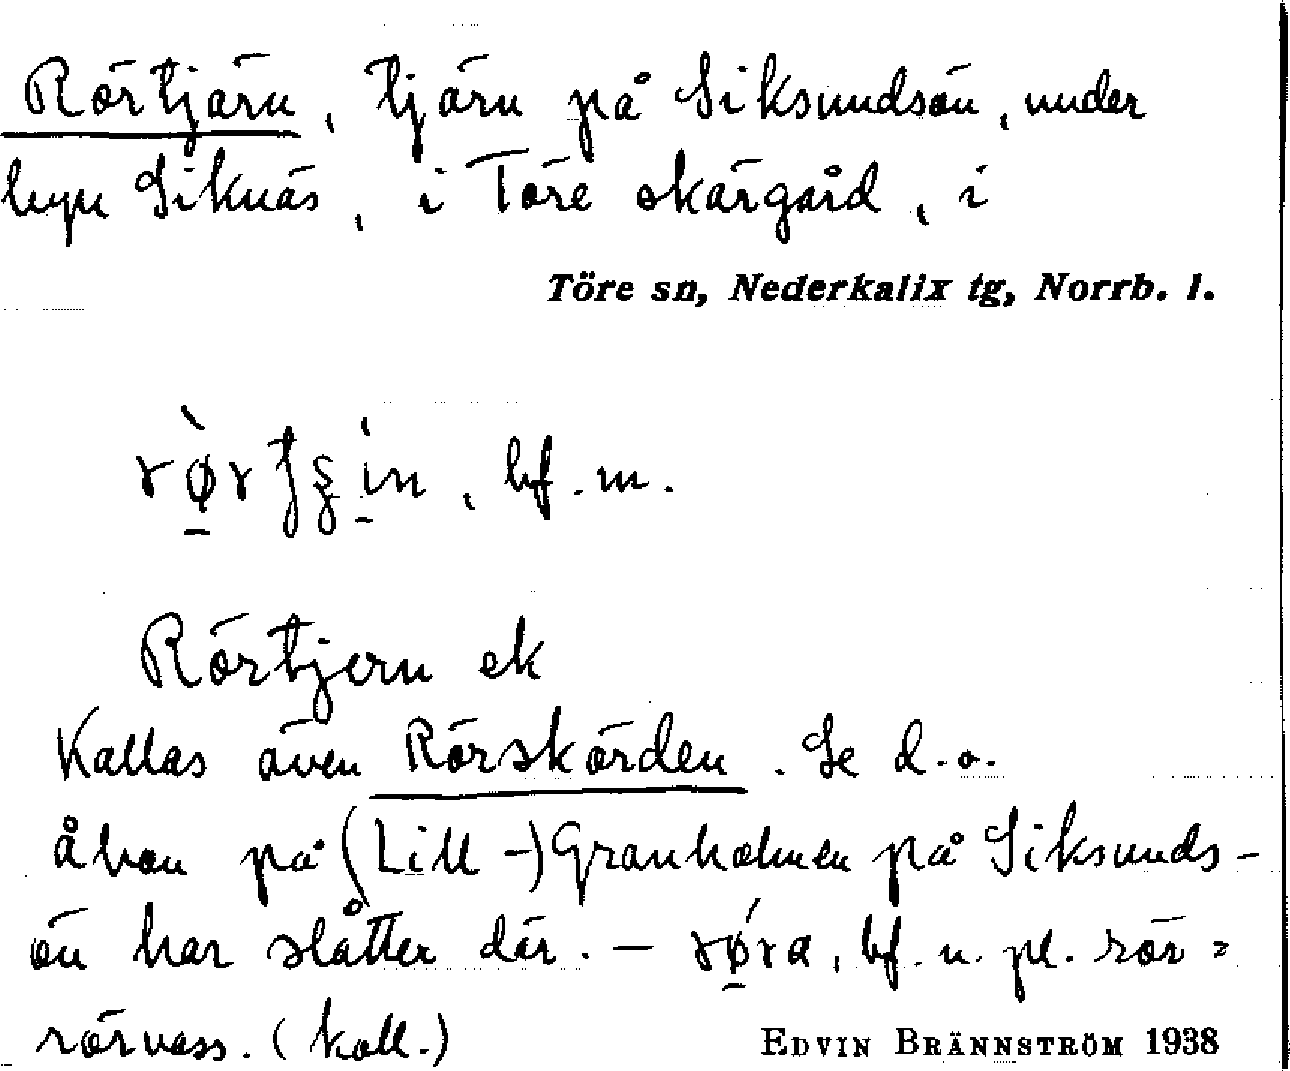 Rörtjärn, tjärn på Siksundsön, under
byn Siknäs, i Töre skärgård, i
Töre sn, Nederkalix tg, Norrb. l.
bf. m.
Rörtjern ek
Kallas även Rörskärden. Se d. o.
Åbon på (Lill-)Granholmen på Siksunds-
ön har slåtter där. — bf. n. pl. rör =
rörvass. (koll.)
EDVIN BRÄNNSTRÖM 1938